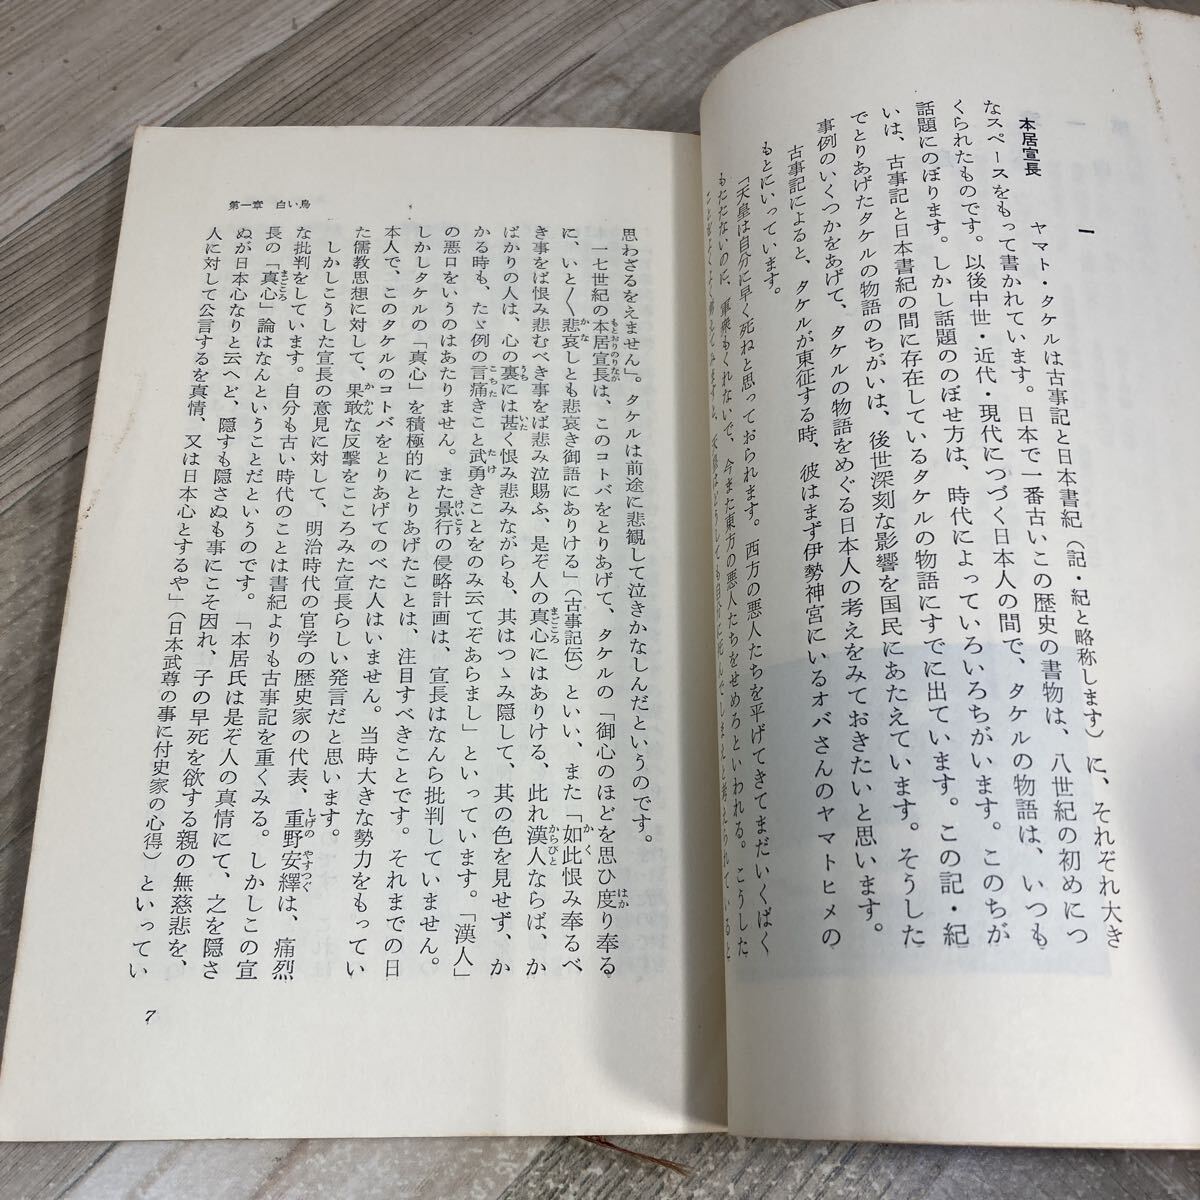 一
本居宣長
ヤマト・タケルは古事記と日本書紀(記・紀と略称します)に、それぞれ大き
なスペースをもって書かれています。日本で一番古いこの歴史の書物は、八世紀の初めにつ
くられたものです。以後中世・近代・現代につづく日本人の間で、タケルの物語は、いつも
話題にのぼります。しかし話題ののぼせ方は、時代によっていろいろちがいます。このちが
いは、古事記と日本書紀の間に存在しているタケルの物語にすでに出ています。この記・紀
でとりあげたタケルの物語のちがいは、後世深刻な影響を国民にあたえています。そうした
事例のいくつかをあげて、タケルの物語をめぐる日本人の考えをみておきたいと思います。
古事記によると、タケルが東征する時、彼はまず伊勢神宮にいるオバさんのヤマトヒメの
もとにいっています。
「天皇は自分に早く死ねと思っておられます。西方の悪人たちを平げてきてまだいくばく
もたたないのに、軍衆もくれないで、今また東方の悪人たちをせめろといわれる。こうした
思わざるをえません」。タケルは前途に悲観して泣きかなしんだというのです。
一七世紀の本居宣長は、このコトバをとりあげて、タケルの「御心のほどを思ひ度り奉る
に、いと〳〵悲哀しとも悲哀き御語にありける」(古事記伝)といい、また「如此恨み奉るべ
き事をば恨み悲むべき事をば悲み泣賜ふ、是ぞ人の真心にはありける、此れ漢人ならば、か
ばかりの人は、心の裏には甚く恨み悲みながらも、其はつゝみ隠して、其の色を見せず、か
かる時も、たゞ例の言痛きこと武勇きことをのみ云てぞあらまし」といっています。「漢人」
の悪口をいうのはあたりません。また景行の侵略計画は、宣長はなんら批判していません。
しかしタケルの「真心」を積極的にとりあげたことは、注目すべきことです。それまでの日
本人で、このタケルのコトバをとりあげてのべた人はいません。当時大きな勢力をもってい
た儒教思想に対して、果敢な反撃をこころみた宣長らしい発言だと思います。
しかしこうした宣長の意見に対して、明治時代の官学の歴史家の代表、重野安繹は、痛烈
な批判をしています。自分も古い時代のことは書紀よりも古事記を重くみる。しかしこの宣
長の「真心」論はなんということだというのです。「本居氏は是ぞ人の真情にて、之を隠さ
ぬが日本心なりと云へど、隠すも隠さぬも事にこそ因れ、子の早死を欲する親の無慈悲を、
人に対して公言するを真情、又は日本心とするや」(日本武尊の事に付史家の心得)といってい
第一章 白い鳥
7